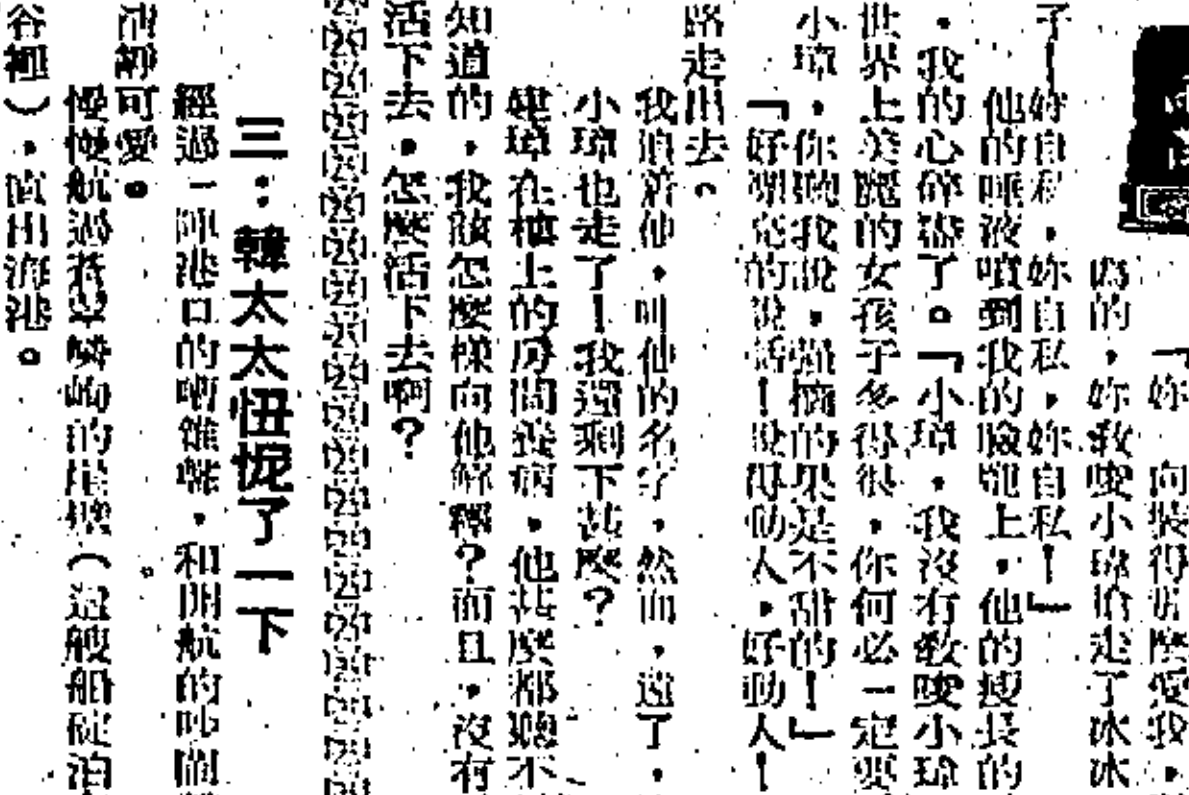 「妳 向裝得那麼愛我，
偽的，妳教唆小璋搶走了冰冰
子！妳自私，妳自私，妳自私！」
他的唾液噴到我的臉龐上，他的瘦長的
，我的心碎了。「小璋，我沒有教唆小璋
世界上美麗的女孩子多得很，你何必一定要
小璋，你聽我說，強摘的果是不甜的！」
「好漂亮的說話！說得動人，好動人！
路走出去。
我追着他，叫他的名字，然而，遠了，
小璋也走了！我還剩下甚麼？
建璋在樓上的房間養病，他甚麼都聽不
知道的，我該怎麼樣向他解釋？而且，沒有
活下去，怎麼活下去啊？
三：韓太太忸怩了一下
經過一陣港口的嘈雜聲，和開航的吵鬧
可愛。
慢慢航過蒼翠嶙峋的崖壁（這艘船碇泊
谷裡），直出海港。